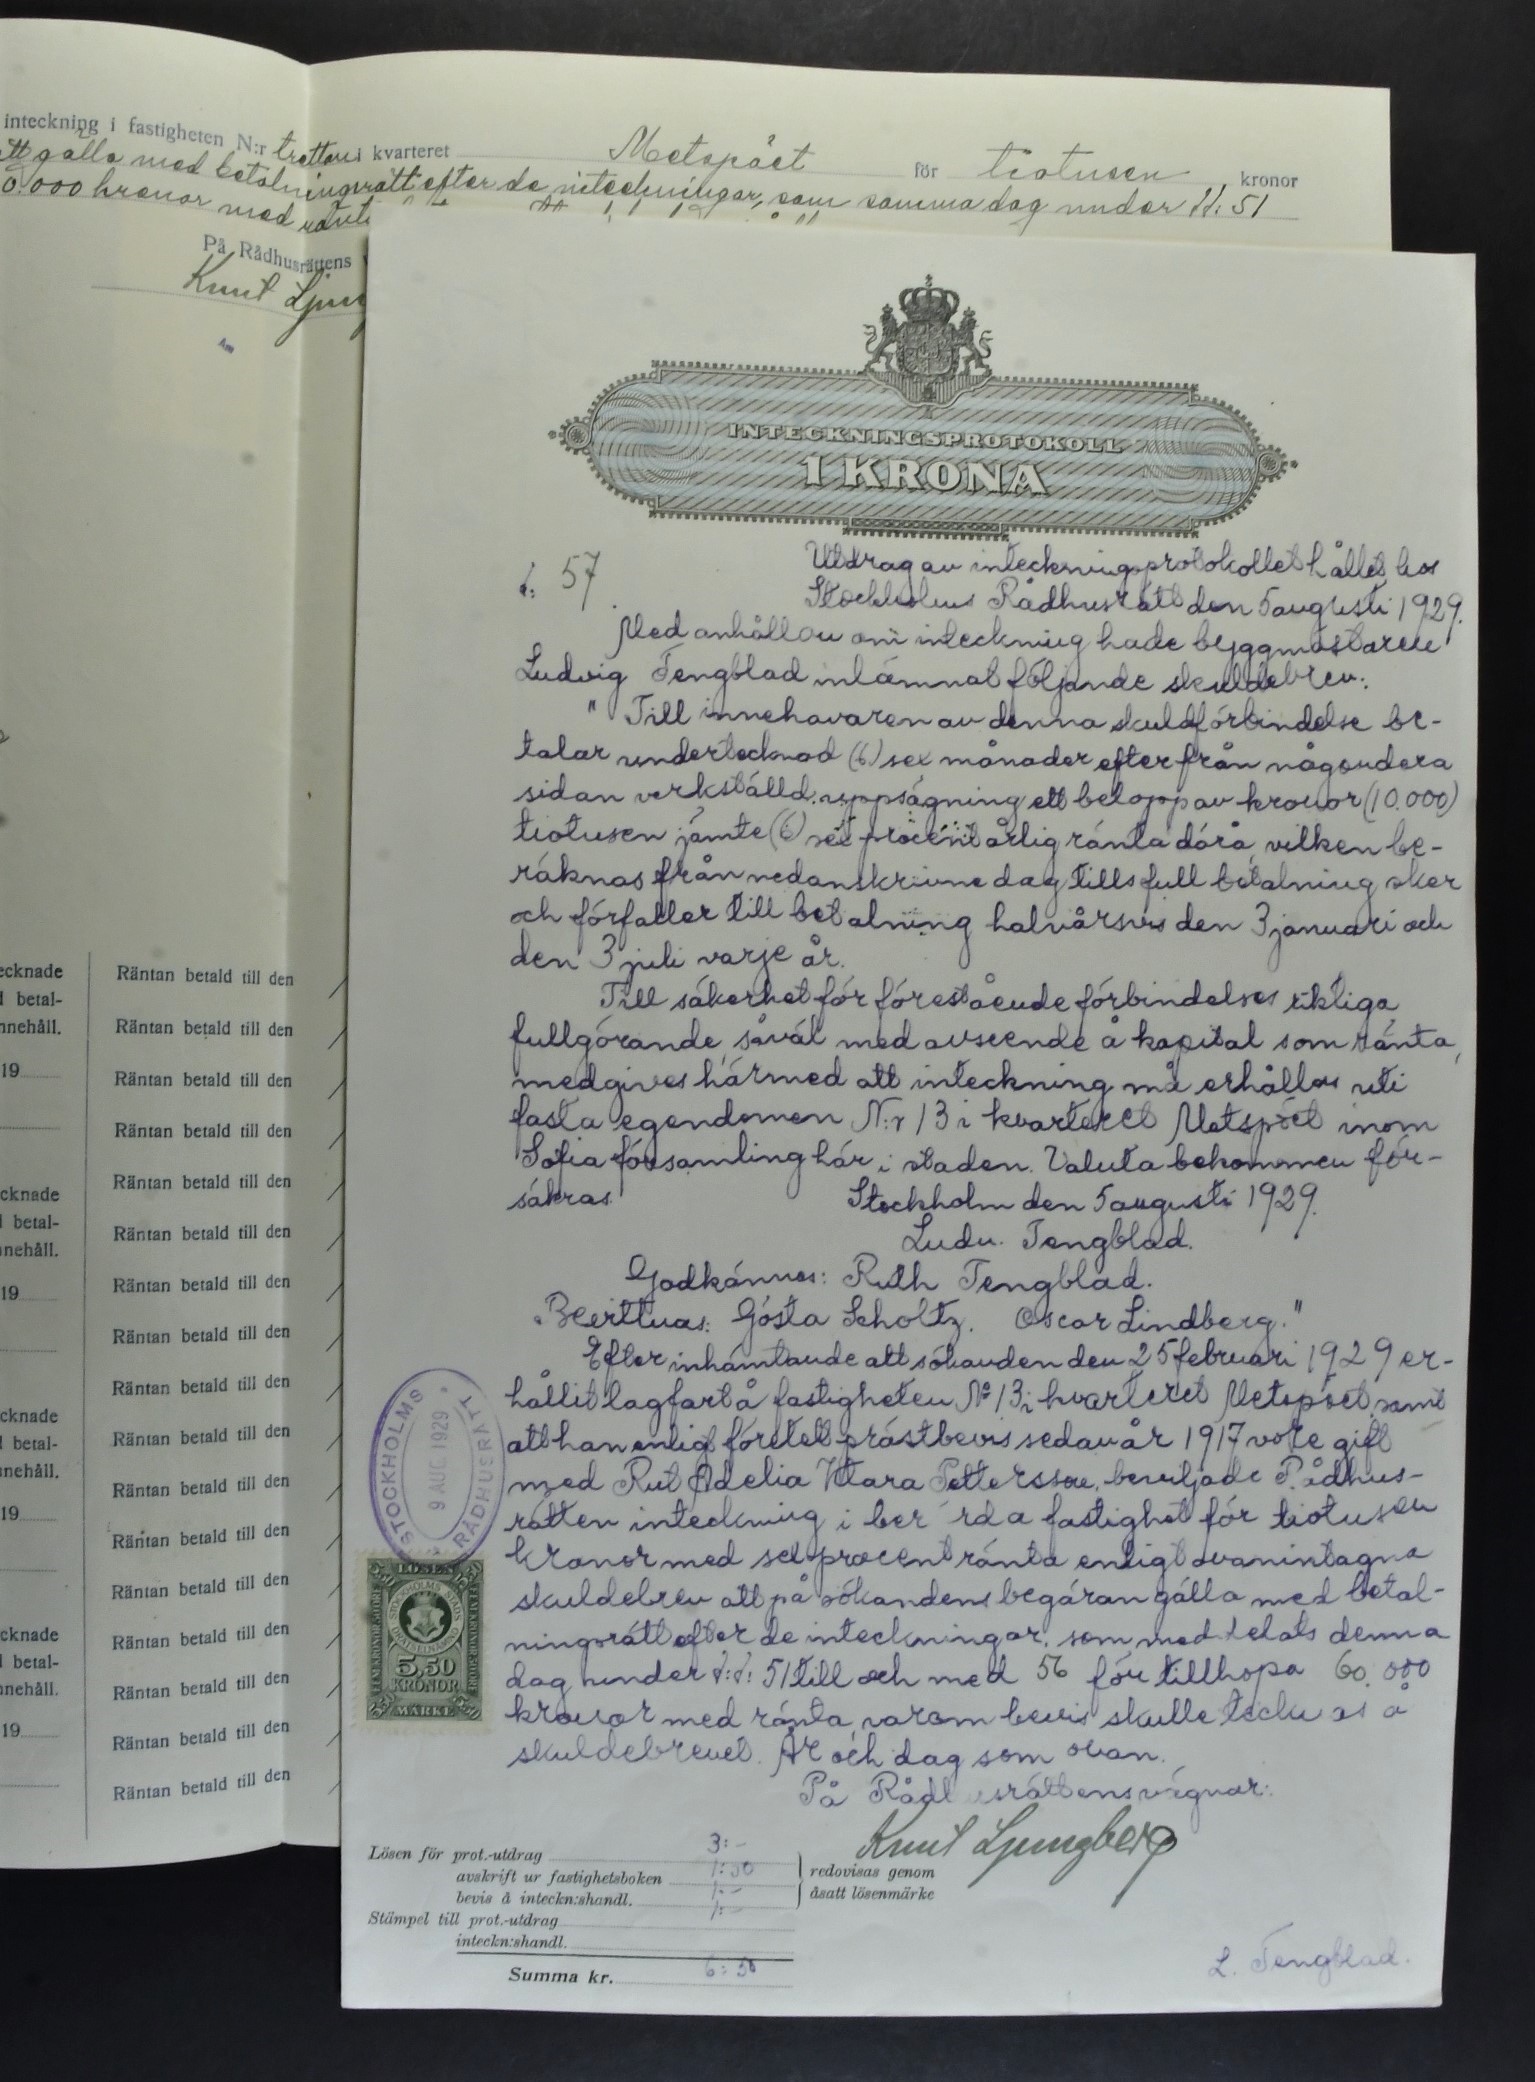 inteckning i fastigheten N:r tretton i kvarteret Metspöet för tiotusen kronor
att gälla med betalningsrätt efter de inteckningar, som samma dag under §§: 51
0.000 kronor med ränta
På Rådhusrättens
Knut Ljung
Am
INTECKNINGSPROTOKOLL
1 KRONA
§: 57.
Utdrag av inteckningsprotokollet hållet hos
Stockholms Rådhusrätt den 5 augusti 1929.
Med anhållan om inteckning hade byggmästaren
Ludvig Tengblad inlämnat följande skuldebrev:
" Till innehavaren av denna skuldförbindelse be-
talar undertecknad (6) sex månader efter från någondera
sidan verkställd uppsägning ett belopp av kronor (10.000)
tiotusen jämte (6) sex procent årlig ränta därå, vilken be-
räknas från nedanskrivne dag tills full betalning sker
och förfaller till betalning halvårsvis den 3 januari och
den 3 juli varje år.
Till säkerhet för förestående förbindelses riktiga
fullgörande, såväl med avseende å kapital som ränta,
medgives härmed att inteckning må erhållas uti
fasta egendomen N:r 13 i kvarteret Metspöet inom
Sofia församling här i staden. Valuta bekommen för-
säkras. Stockholm den 5 augusti 1929.
Ludv. Tengblad.
Godkännes: Ruth Tengblad.
Bevittnas: Gösta Scholtz. Oscar Lindberg."
Efter inhämtande att sökanden den 25 februari 1929 er-
hållit lagfart å fastigheten No 13 i kvarteret Metspöet samt
att han enligt företett prästbevis sedan år 1917 vore gift
med Rut Adelia Klara Pettersson, beviljade Rådhus-
rätten inteckning i berörda fastighet för tiotusen
kronor med sex procent ränta enligt ovanintagna
skuldebrev att på sökandens begäran gälla med betal-
ningsrätt efter de inteckningar, som meddelats denna
dag under §:§: 51 till och med 56 för tillhopa 60.000
kronor med ränta, varom bevis skulle tecknas å
skuldebrevet. År och dag som ovan.
På Rådhusrättens vägnar:
Knut Ljungberg
STOCKHOLMS
9 AUG. 1929
RÅDHUSRÄTT
LÖSEN
STOCKHOLMS STADS
DRÄTSELNÄMND
5,50
KRONOR
MÄRKE
Lösen för prot.-utdrag 3:-
avskrift ur fastighetsboken 1:50
bevis å inteckn:shandl. 1:-
redovisas genom
åsatt lösenmärke
Stämpel till prot.-utdrag 1:-
inteckn:shandl.
Summa kr. 6:50
L. Tengblad.
ecknade
d betal-
nnehåll.
19
cknade
l betal-
nnehåll.
19
cknade
l betal-
nnehåll.
19
cknade
l betal-
nnehåll.
19
Räntan betald till den
Räntan betald till den
Räntan betald till den
Räntan betald till den
Räntan betald till den
Räntan betald till den
Räntan betald till den
Räntan betald till den
Räntan betald till den
Räntan betald till den
Räntan betald till den
Räntan betald till den
Räntan betald till den
Räntan betald till den
Räntan betald till den
Räntan betald till den
Räntan betald till den